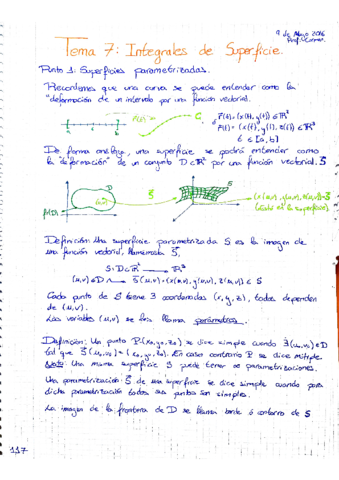 9 de Mayo 2016
Tema 7: Integrales de Superficie.
Punto 1: Superficies parametrizadas.
Recordemos que una curva se puede entender como la
"deformación de un intervalo por una función vectorial.
a t b r̄(t) C
r̄(t) = (x(t), y(t)) ∈ ℝ²
r̄(t) = (x(t), y(t), z(t)) ∈ ℝ³
t ∈ [a, b]
De forma análoga, una superficie se podría entender como
la "deformación" de un conjunto D⊂ℝ² por una función vectorial S̄
D (u,v) S̄ S (x(u,v), y(u,v), z(u,v)) = S̄
Definición: Una superficie parametrizada S es la imagen de
una función vectorial, llamémosla S̄,
S̄: D⊂ℝ² → ℝ³
(u,v)∈D → S̄(u,v) = (x(u,v), y(u,v), z(u,v)) ∈ S
Cada punto de S tiene 3 coordenadas (x,y,z), todas dependen
de (u,v).
Las variables (u,v) se les llama parámetros.
Definición: Un punto P(x₀,y₀,z₀) se dice simple cuando ∃(u₀,v₀)∈D
tal que S̄(u₀,v₀) = (x₀,y₀,z₀). En caso contrario P se dice múltiple.
Nota: Una misma superficie S puede tener ∞ parametrizaciones.
Una parametrización S̄ de una superficie se dice simple cuando para
dicha parametrización todos sus puntos son simples.
La imagen de la frontera de D se llama borde o contorno de S